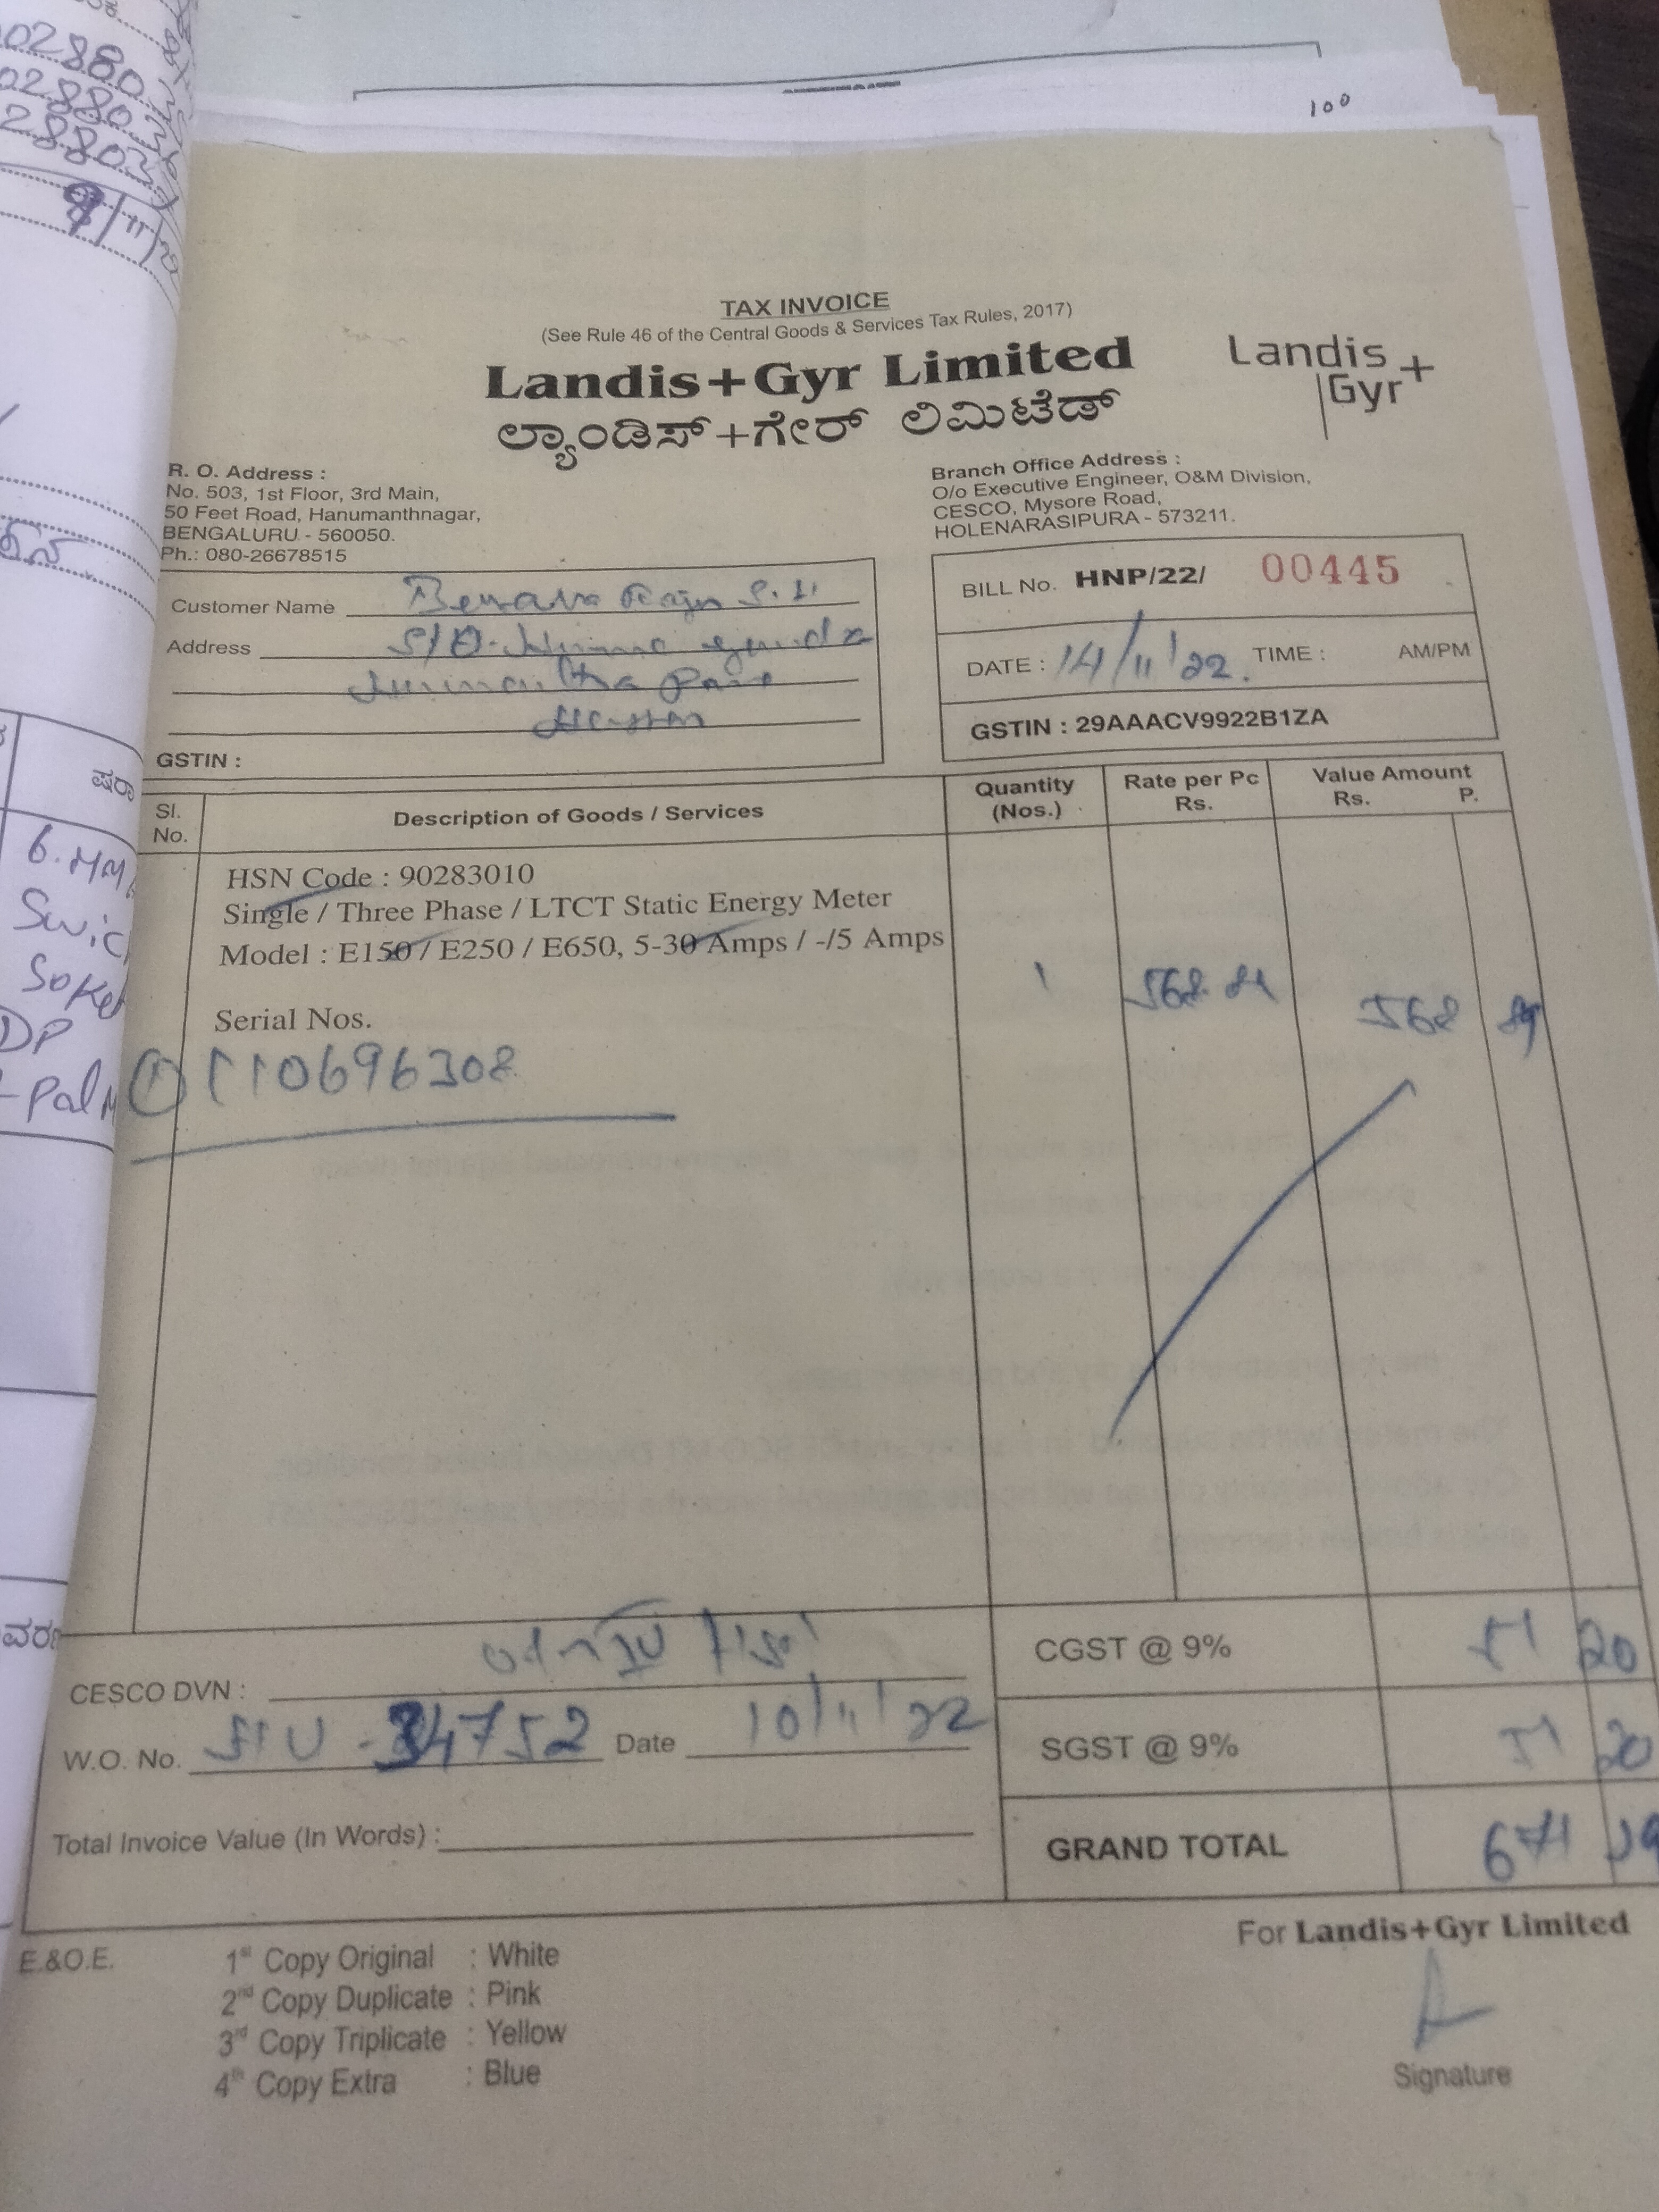 02880
02880
28803
9/11/2
100
TAX INVOICE
(See Rule 46 of the Central Goods & Services Tax Rules, 2017)
Landis+Gyr Limited
ಲ್ಯಾಂಡಿಸ್+ಗೇರ್ ಲಿಮಿಟೆಡ್
Landis+
Gyr
R. O. Address :
No. 503, 1st Floor, 3rd Main,
50 Feet Road, Hanumanthnagar,
BENGALURU - 560050.
Ph.: 080-26678515
Branch Office Address :
O/o Executive Engineer, O&M Division,
CESCO, Mysore Road,
HOLENARASIPURA - 573211.
Customer Name
Address S/O
GSTIN :
BILL No. HNP/22/ 00445
DATE : 14/11/22. TIME : AM/PM
GSTIN : 29AAACV9922B1ZA
ಷರಾ
6.
DP
Sl. No. Description of Goods / Services Quantity (Nos.) Rate per Pc Rs. Value Amount Rs. P.
HSN Code : 90283010
Single / Three Phase / LTCT Static Energy Meter
Model : E150 / E250 / E650, 5-30 Amps / -/5 Amps
1 568. 568
Serial Nos.
① 110696308
CESCO DVN :
W.O. No. 34752 Date 10/11/22
Total Invoice Value (In Words) :
CGST @ 9% 51 20
SGST @ 9% 51 20
GRAND TOTAL 671
For Landis+Gyr Limited
Signature
E.&O.E.
1st Copy Original : White
2nd Copy Duplicate : Pink
3rd Copy Triplicate : Yellow
4th Copy Extra : Blue